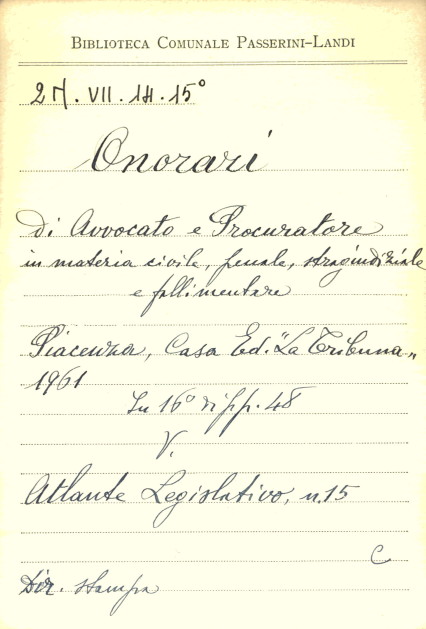 BIBLIOTECA COMUNALE PASSERINI-LANDI
2M. VII. 14. 15°
Onorari
di Avvocato e Procuratore
in materia civile, penale, stragiudiziale
e fallimentare
Piacenza, Casa Ed. "La Tribuna"
1961
In 16° di pp. 48
V.
Atlante Legislativo, n. 15
C
Dir. stampa